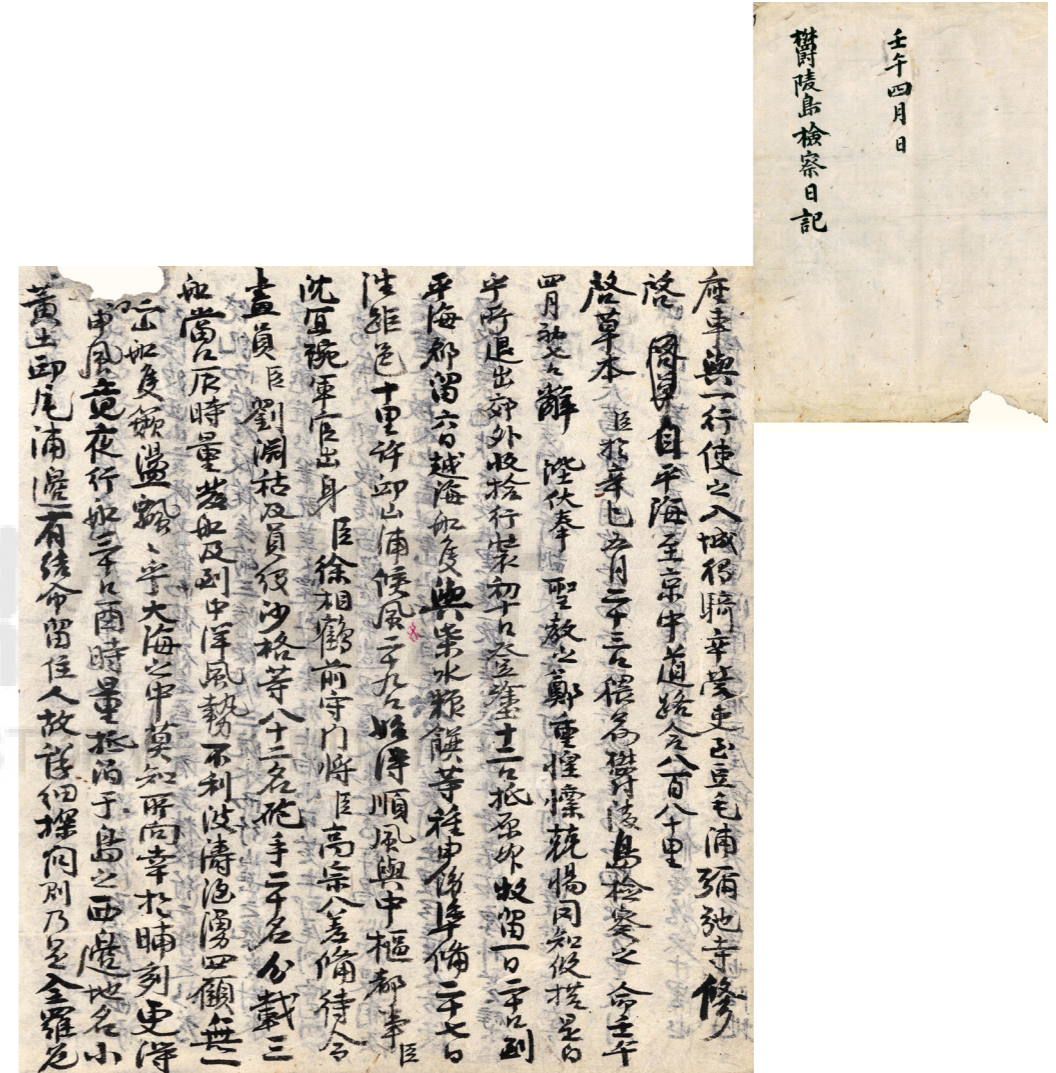 壬午四月 日
鬱陵島檢察日記
座車與一行使之入城獨騎辛
豆毛浦彌勒寺修
啓 自平海至京中道路合八百八十里
啓草本 臣於辛巳五月二十三日猥爲鬱陵島檢察之 命壬午
四月初七日辭 陛伏奉 聖教之鄭重惶懍兢惕罔知攸措是日
午所退出郊外收拾行裝初十日登途十二日抵原州牧留一日二十日到
平海郡留六日越海船隻與柴水糧饌等種申飭準備二十七日
往距邑十里許邱山浦候風二十九日始得順風與中樞都事臣
沈宜琬軍官出身 臣徐相鶴前守門將臣高宗八差備待令
畫員臣劉淵祜及員役沙格等八十二名砲手二十名分載三
船當日辰時量發船及到中洋風勢不利波濤洶湧四顧無一
山船隻簸盪飄飄乎大海之中莫知所向幸於晡刻更得
風竟夜行船三十日酉時量抵泊于島之西邊地名小
黃土邱尾浦邊有結幕留住人故詳細探問則乃是全羅道